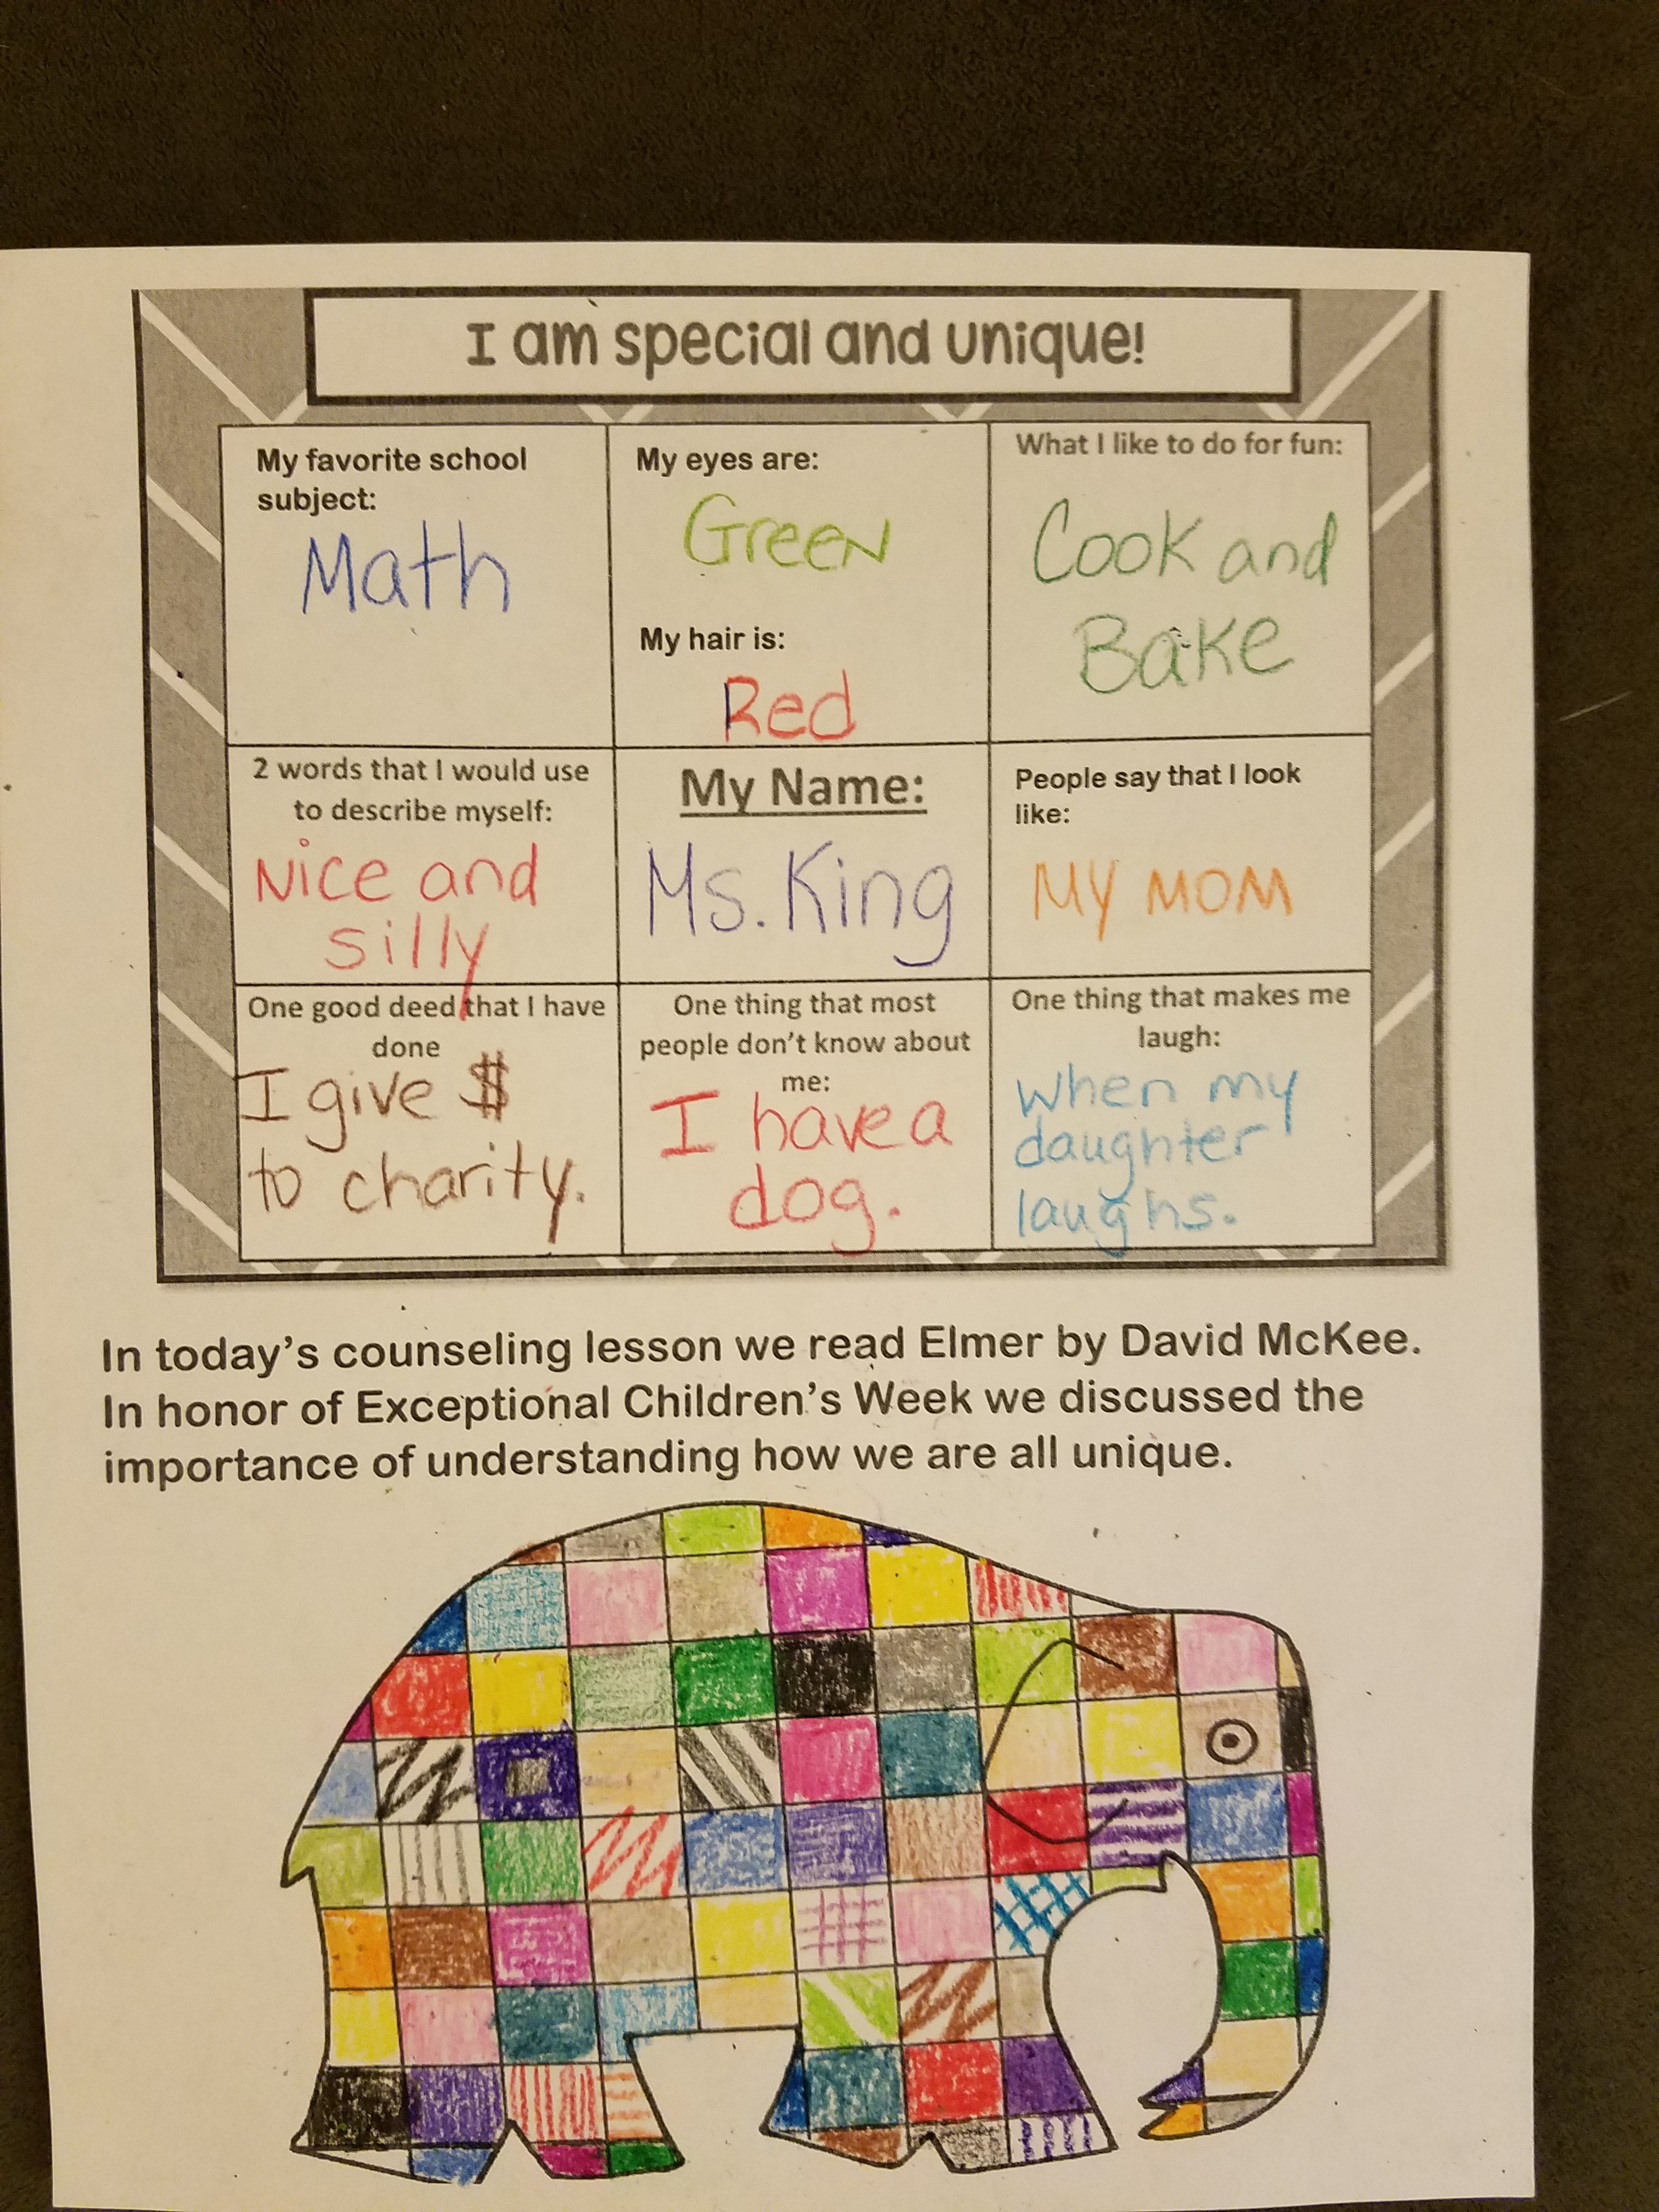 I am special and unique!
My favorite school
subject:
Math
My eyes are:
Green
My hair is:
Red
What I like to do for fun:
Cook and
Bake
2 words that I would use
to describe myself:
Nice and
silly
My Name:
Ms. King
People say that I look
like:
MY MOM
One good deed that I have
done
I give $
to charity.
One thing that most
people don't know about
me:
I have a
dog.
One thing that makes me
laugh:
when my
daughter
laughs.
In today's counseling lesson we read Elmer by David McKee.
In honor of Exceptional Children's Week we discussed the
importance of understanding how we are all unique.